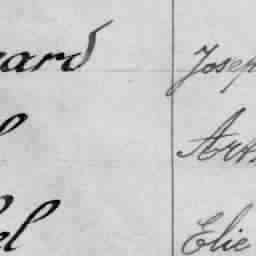 nard Josep
l Art
el Elie